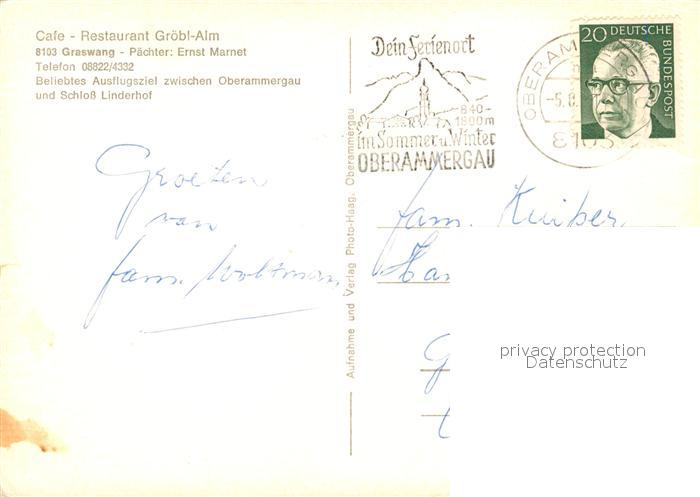 Cafe - Restaurant Gröbl-Alm
8103 Graswang - Pächter: Ernst Marnet
Telefon 08822/4332
Beliebtes Ausflugsziel zwischen Oberammergau
und Schloß Linderhof
Groeten
van
fam. Woltman
Aufnahme und Verlag Photo-Haag, Oberammergau
Dein Ferienort
840-
1800m
im Sommer u. Winter
OBERAMMERGAU
OBERAM RGAU
-5.8.
8103
20 DEUTSCHE
BUNDESPOST
fam. Kuiper
Ha
G
privacy protection
Datenschutz